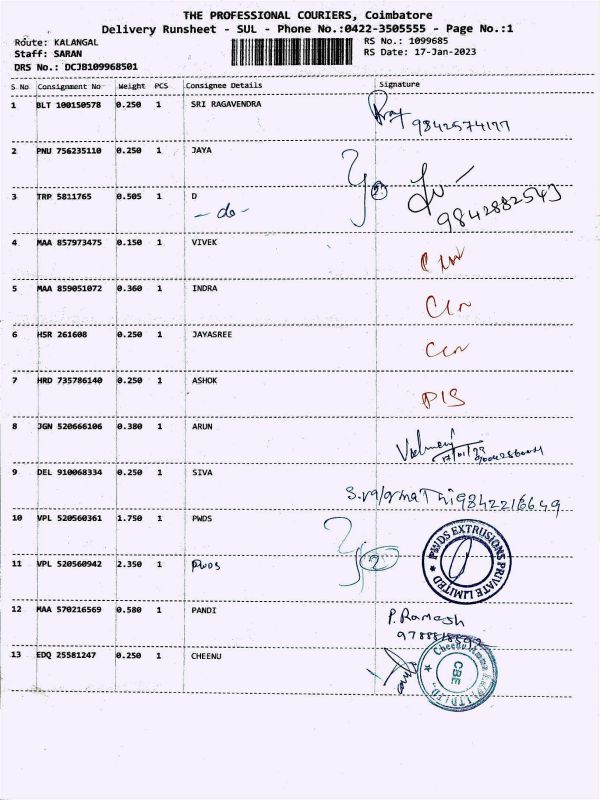 THE PROFESSIONAL COURIERS, Coimbatore
Delivery Runsheet - SUL - Phone No.:0422-3505555 - Page No.:1
Route: KALANGAL
RS No.: 1099685
Staff: SARAN
RS Date: 17-Jan-2023
DRS No.: DCJB109968501
S No Consignment No Weight PCS Consignee Details Signature
1 BLT 100150578 0.250 1 SRI RAGAVENDRA
9842574177
2 PNU 756235110 0.250 1 JAYA
3 TRP 5811765 0.505 1 D
- do -
9842882543
4 MAA 857973475 0.150 1 VIVEK
5 MAA 859051072 0.360 1 INDRA
6 HSR 261608 0.250 1 JAYASREE
7 HRD 735786140 0.250 1 ASHOK
8 JGN 520666106 0.380 1 ARUN
9 DEL 910068334 0.250 1 SIVA
9842216649
10 VPL 520560361 1.750 1 PWDS
PWDS EXTRUSIONS PRIVATE LIMITED
11 VPL 520560942 2.350 1 PWDS
12 MAA 570216569 0.580 1 PANDI P. Ramesh
13 EDQ 25581247 0.250 1 CHEENU
CBE